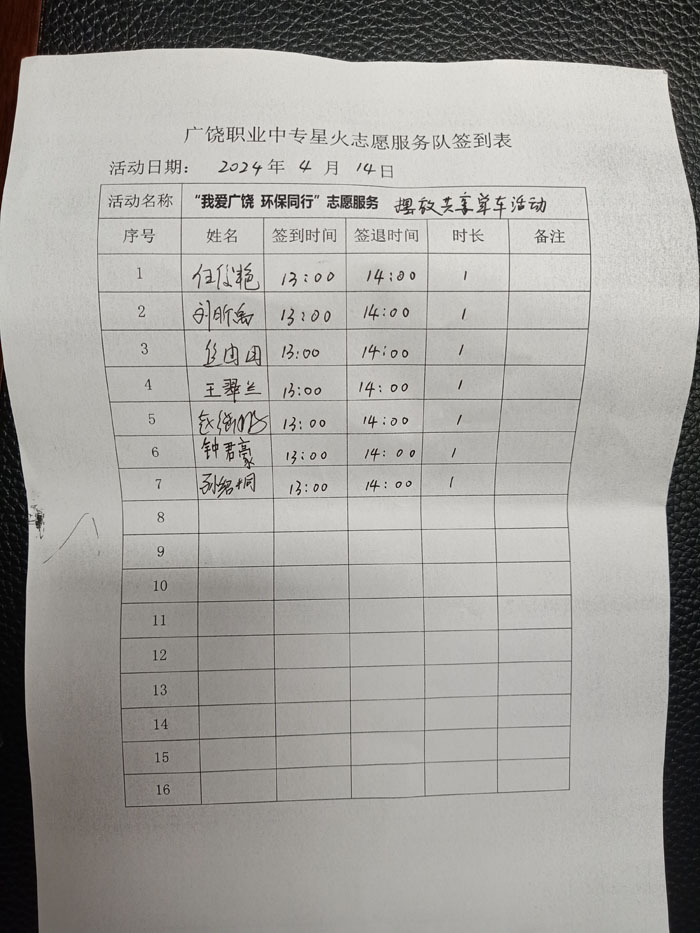 广饶职业中专星火志愿服务队签到表
活动日期： 2024 年 4 月 14 日
活动名称 “我爱广饶 环保同行”志愿服务 摆放共享单车活动
序号 姓名 签到时间 签退时间 时长 备注
1 任俊艳 13:00 14:00 1
2 刘昕禹 13:00 14:00 1
3 13:00 14:00 1
4 王翠兰 13:00 14:00 1
5 13:00 14:00 1
6 钟君豪 13:00 14:00 1
7 13:00 14:00 1
8
9
10
11
12
13
14
15
16